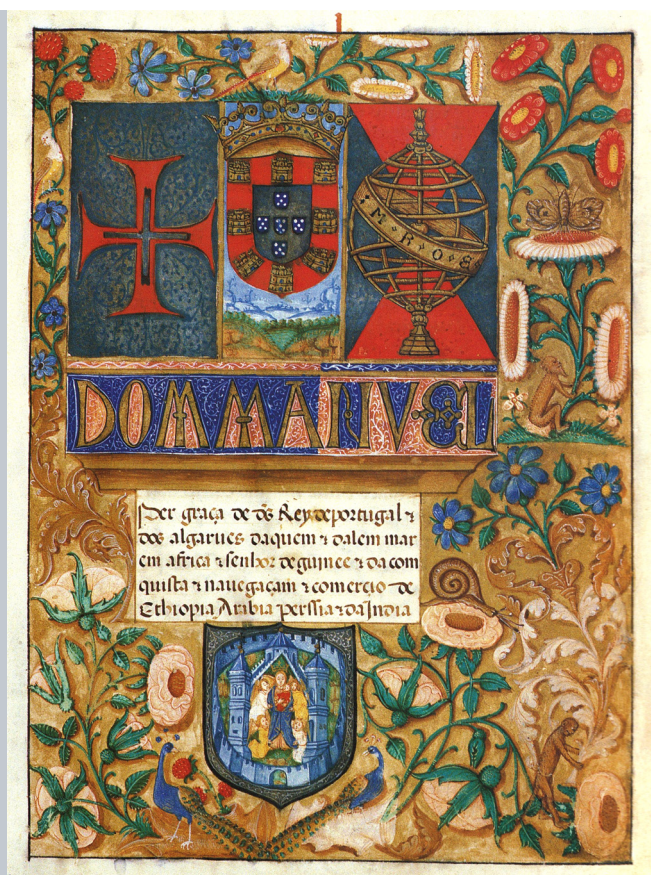 M · R · O · E
DOM MANVEL
Per graça de ds̃ Rey deportugal ⁊
dos algarues daquem ⁊ dalem mar
em africa ⁊ senhor deguinee ⁊ dacom
quista ⁊ nauegaçam ⁊ comercio de
Ethiopia Arabia perssia ⁊ da India